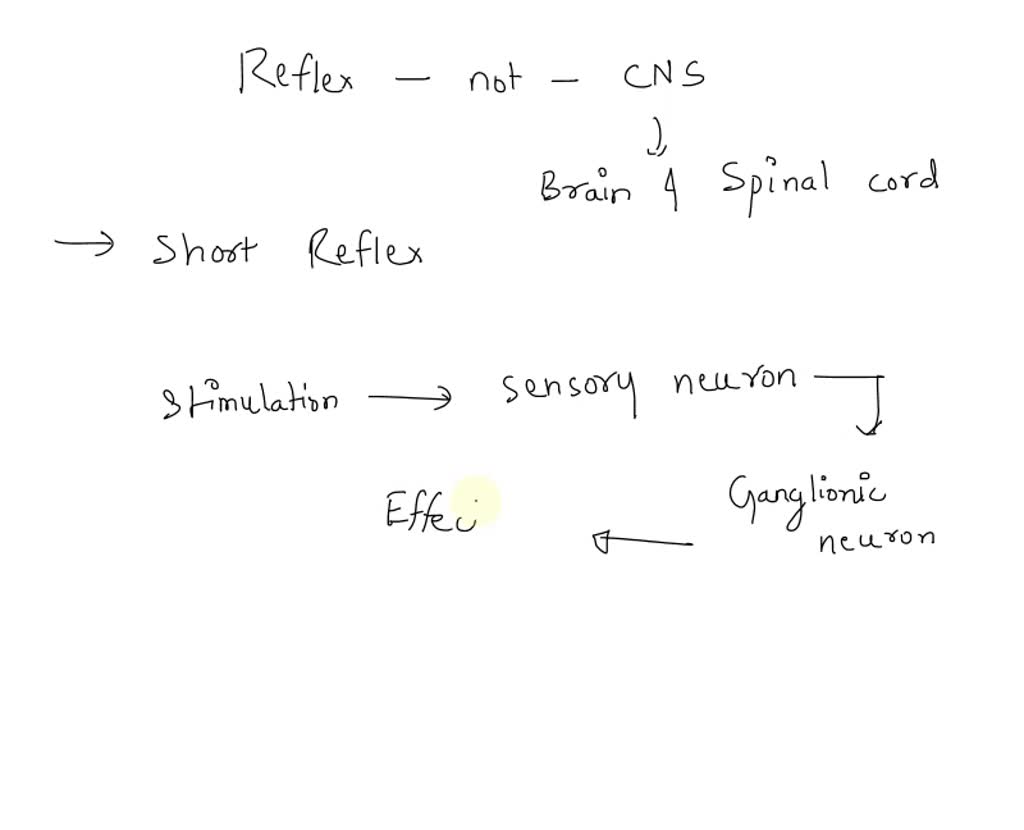 Reflex – not – CNS
Brain & Spinal cord
→ Short Reflex
Stimulation → Sensory neuron
Ganglionic
neuron
Effec